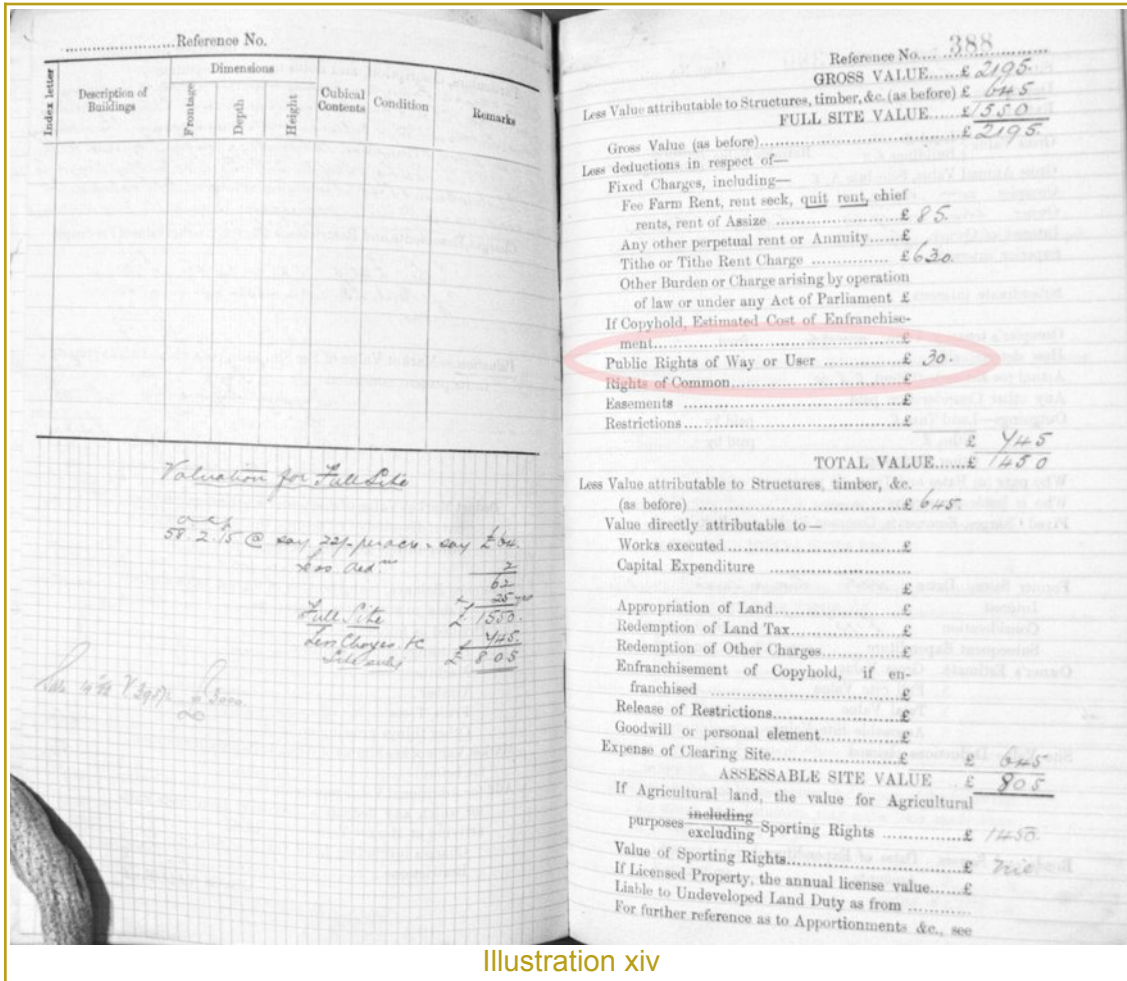 ........................Reference No.
Index letter
Description of Buildings
Dimensions
Frontage
Depth
Height
Cubical Contents
Condition
Remarks
Valuation for Full Site
a r p
58. 2. 15 @ say 22/- per acre = say £64.
Less dedn 2
62
25 yrs
Full Site £ 1550.
Less Charges &c £ 745.
£ 805
Reference No.... 388 ............
GROSS VALUE......£ 2195.
Less Value attributable to Structures, timber, &c. (as before) £ 645
FULL SITE VALUE......£ 1550
Gross Value (as before)..............................£ 2195.
Less deductions in respect of—
Fixed Charges, including—
Fee Farm Rent, rent seck, quit rent, chief
rents, rent of Assize ..................£ 85.
Any other perpetual rent or Annuity......£
Tithe or Tithe Rent Charge .............. £ 630.
Other Burden or Charge arising by operation
of law or under any Act of Parliament £
If Copyhold, Estimated Cost of Enfranchise-
ment..............................................£
Public Rights of Way or User ...............£ 30.
Rights of Common..............................£
Easements ......................................£
Restrictions......................................£
£ 745
TOTAL VALUE......£ 1450
Less Value attributable to Structures, timber, &c.
(as before) ....................................£ 645.
Value directly attributable to—
Works executed ..............................£
Capital Expenditure .....................
£
Appropriation of Land........................£
Redemption of Land Tax.....................£
Redemption of Other Charges..............£
Enfranchisement of Copyhold, if en-
franchised ..................................£
Release of Restrictions........................£
Goodwill or personal element...............£
Expense of Clearing Site........................£ £ 645
ASSESSABLE SITE VALUE £ 805
If Agricultural land, the value for Agricultural
purposes including excluding Sporting Rights ................£ 1450.
Value of Sporting Rights..............................£
If Licensed Property, the annual license value......£
Liable to Undeveloped Land Duty as from ............
For further reference as to Apportionments &c., see
Illustration xiv